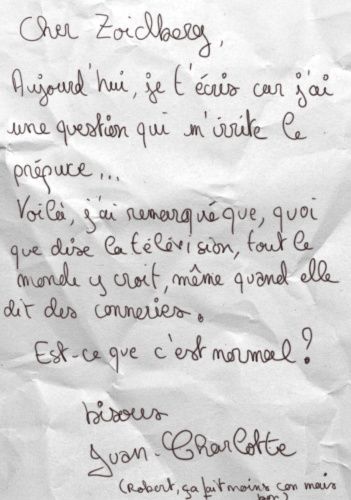 Cher Zoidberg,
Aujourd'hui, je t'écris car j'ai
une question qui m'irrite le
prépuce...
Voilà, j'ai remarqué que, quoi
que dise la télévision, tout le
monde y croit, même quand elle
dit des conneries.
Est-ce que c'est normal?
bisous
Juan-Charlotte
(Robert, ça fait moins con mais